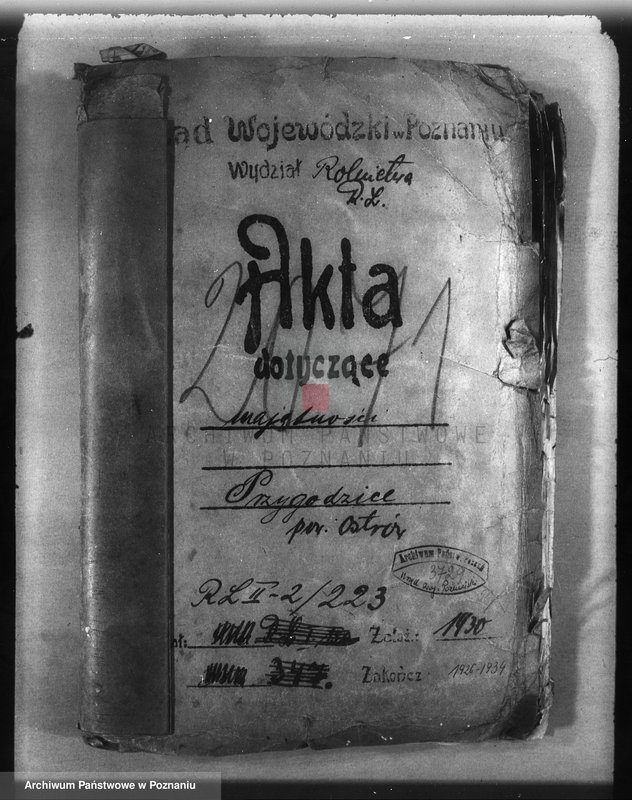 ąd Wojewódzki w Poznaniu
Wydział Rolnictwa
R.L.
Akta
dotyczące
majętności
ARCHIWUM PAŃSTWOWE
W POZNANIU
Przygodzice
pow. Ostrów
Archiwum Państw. w Pozna
RL II-2/223
Założ.: 1930
Zakończ 1926-1934
Archiwum Państwowe w Poznaniu